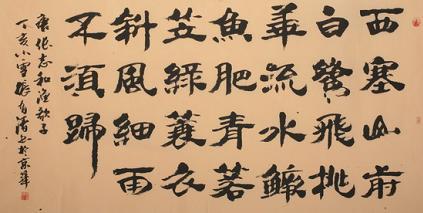 西塞山前
白鷺飛桃
華流水鱖
魚肥青箬
笠綠蓑衣
斜風細雨
不須歸
唐張志和漁歌子
丁亥小雪張有書於京華